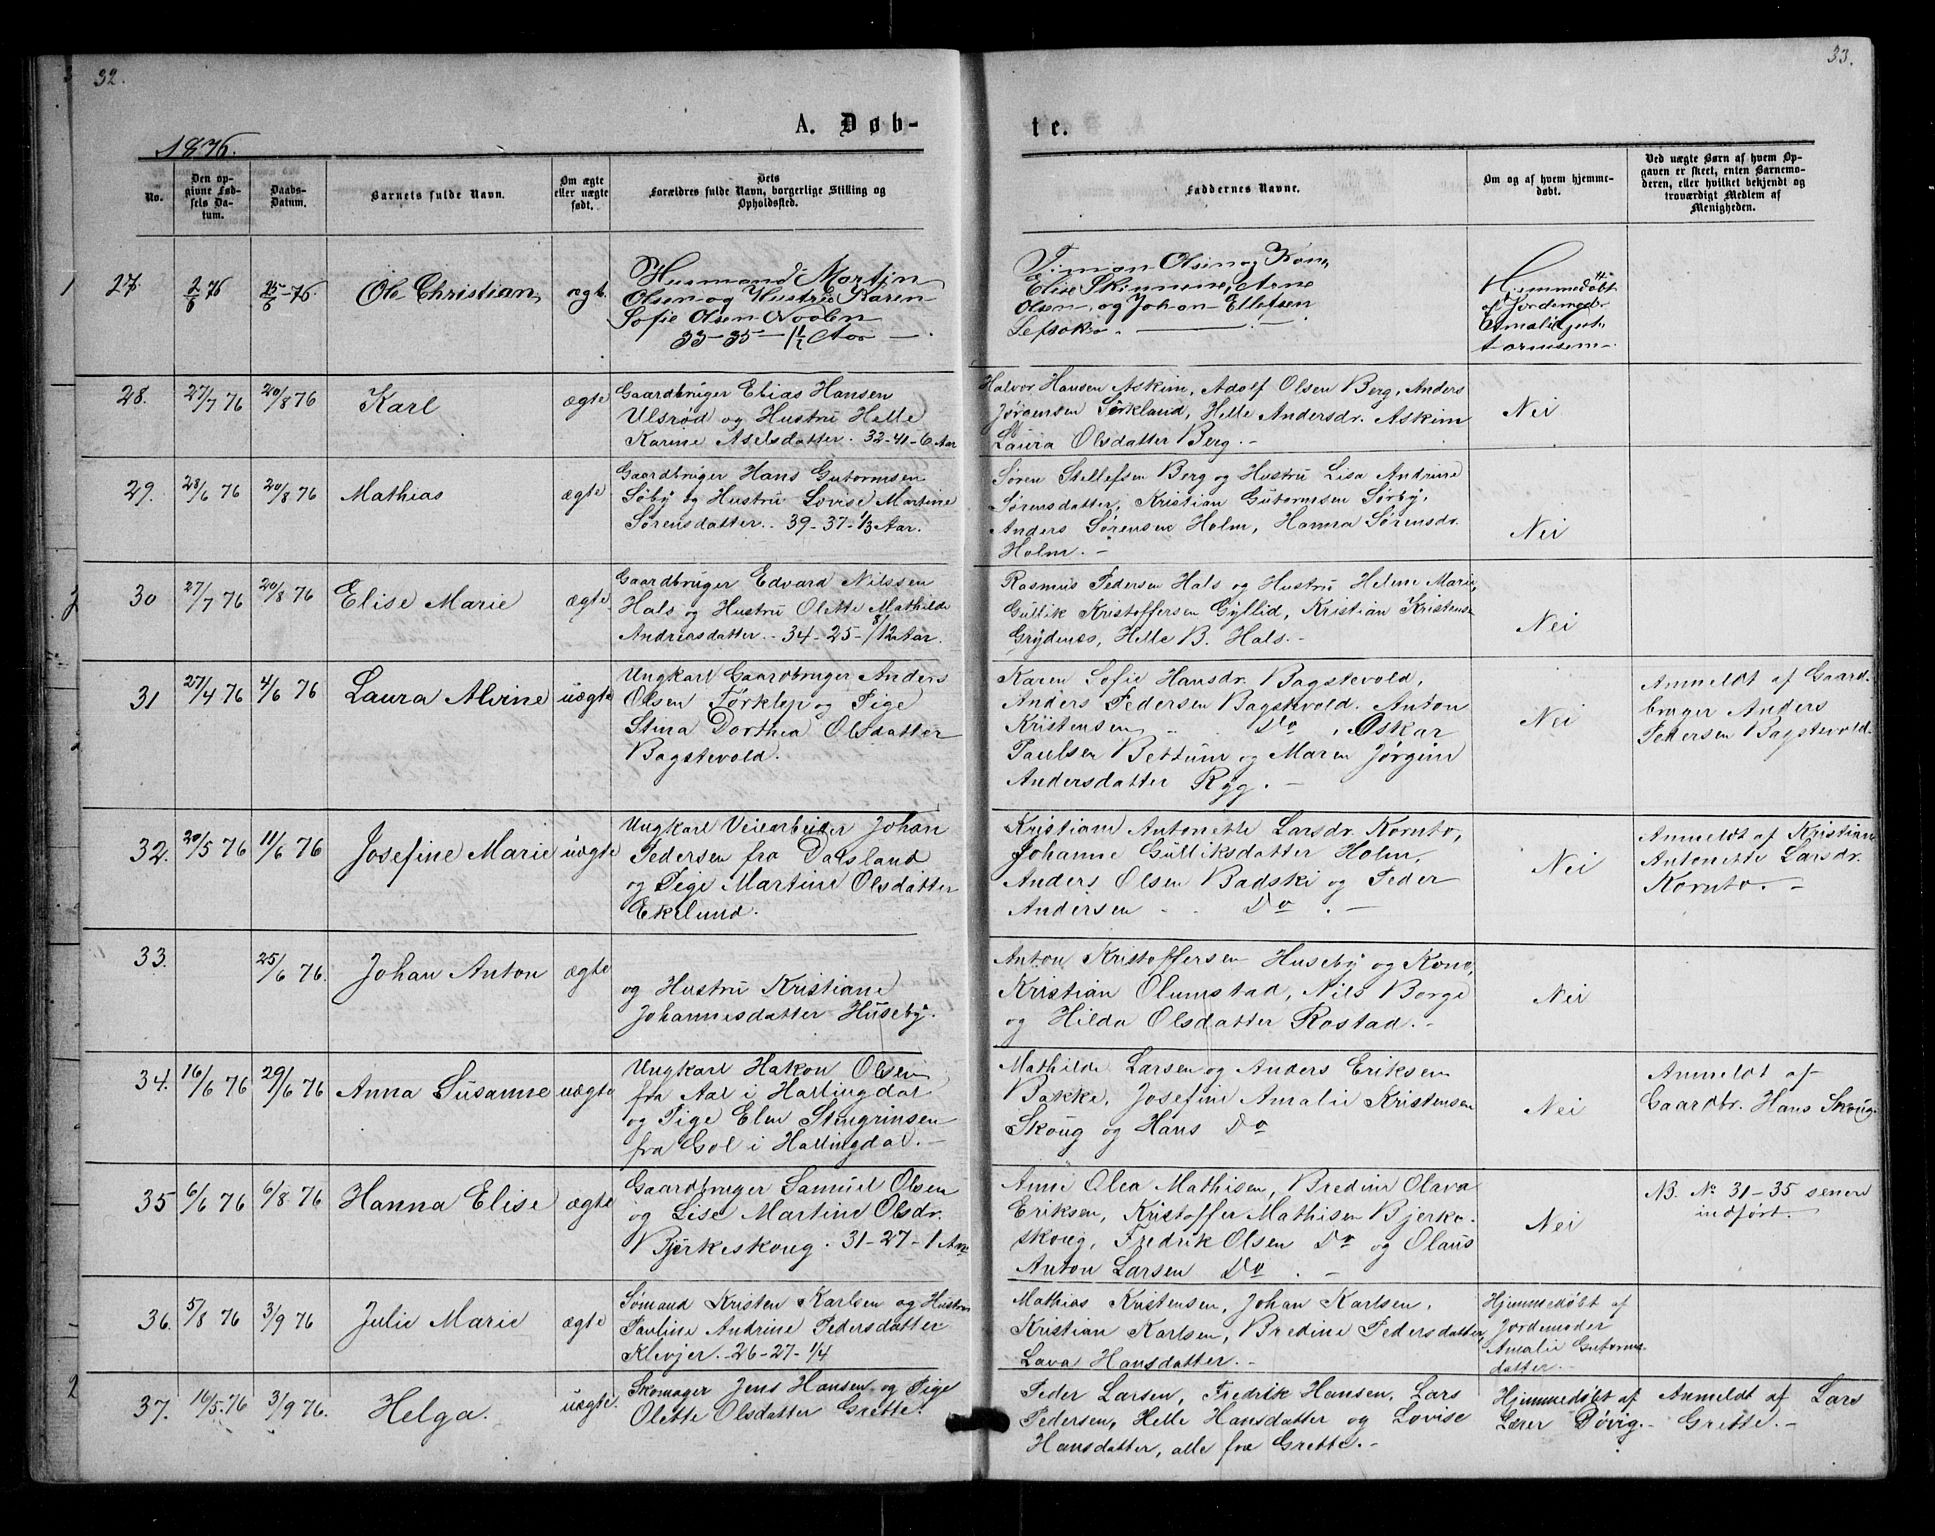 32.
33.
A. Døb-
te.
1876.
No.
Den op-
givne Fød-
sels Da-
tum.
Daabs-
Datum.
Barnets fulde Navn.
Om ægte
eller uægte
født.
Dets
Forældres fulde Navn, borgerlige Stilling og
Opholdssted.
Faddernes Navne.
Om og af hvem hjemme-
døbt.
Ved uægte Børn af hvem Op-
gaven er skeet, enten Barnemo-
deren, eller hvilket bekjendt og
troværdigt Medlem af
Menigheden.
27. 2/6 76 25/6-76. Ole Christian, ægte
Husmand Martin
Olsen og Hustru Karen
Sofie Olsen
33-35-1½ Aar
Simon Olsen og Kone
Elise Skinnene, Arne
Olsen, og Johan Ellefsen
Hjemmedøbt
af Jordemoder
Amalie
28. 27/7 76 20/8 76 Karl ægte
Gaardbruger Elias Hansen
Ulsrød og Hustru Helle
Karine Axelsdatter. 32-41-6 Aar
Halvor Hansen Askim, Adolf Olsen Berg, Anders
Jørgensen Sørkland, Helle Andersdr. Askim
Laura Olsdatter Berg.-
Nei
29. 28/6 76 20/8 76 Mathias ægte
Gaardbruger Hans Gutormsen
Søby og Hustru Lovise Martine
Sørensdatter. 39-37-1/3 Aar.
Søren Stellefsen Berg og Hustru Lisa Andrine
Sørensdatter, Kristian Gutormsen Sørby,
Anders Sørensen Holm, Hanna Sørensdr.
Holm.-
Nei
30 27/7 76 20/8 76 Elise Marie ægte
Gaardbruger Edvard Nilssen
Hals og Hustru Olette Mathilde
Andreasdatter.- 34-25-8/12 Aar.
Rasmus Pedersen Hals og Hustru Helene Marie,
Gullik Kristoffersen Gyllid, Kristian Kristensen
Grydenæs, Helle B. Hals.-
Nei
31 27/4 76 4/6 76 Laura Alvine uægte
Ungkarl Gaardbruger Anders
Olsen Førklep og Pige
Stina Dorthea Olsdatter
Bagstevold.
Karen Sofie Hansdr. Bagstevold,
Anders Pedersen Bagstevold. Anton
Kristensen Do, Oskar
Paulsen Bettum og Maren Jørgine
Andersdatter Ryg.-
Nei
Anmeldt af Gaard-
bruger Anders
Pedersen Bagstevold.
32. 20/5 76 11/6 76 Josefine Marie uægte
Ungkarl Veiearbeider Johan
Pedersen fra Dalsland
og Pige Martine Olsdatter
Ekelund.
Kristiane Antonette Larsdr. Kornto,
Johanne Gulliksdatter Holm,
Anders Olsen Badski og Peder
Andersen Do.-
Nei
Anmeldt af Kristiane
Antonette Larsdr.
Kornto.-
33. 25/6 76. Johan Anton ægte
og Hustru Kristiane
Johannesdatter Huseby.
Anton Kristoffersen Huseby og Kone,
Kristian Olumstad, Nils Borge
og Hilda Olsdatter Rostad.-
Nei
34. 16/6 76 29/6 76 Anna Susanne uægte
Ungkarl Hakon Olsen
fra Aal i Hallingdal
og Pige Elen Stengrinsen
fra Gol i Hallingdal.-
Mathilde Larsen og Anders Eriksen
Bakke, Josefine Amalie Kristensen
Skoug og Hans Do
Nei
Anmeldt af
Gaardbr. Hans Skoug
35 6/6 76 6/8 76 Hanna Elise ægte
Gaardbruger Samuel Olsen
og Lise Martine Olsdr.
Bjerkeskoug. 31-27-1 Aar
Anne Olea Mathisen, Bredine Olava
Eriksen, Kristoffer Mathisen Bjerke-
skoug, Fredrik Olsen Do og Olaus
Anton Larsen Do.-
Nei
NB. No 31-35 senere
indført.
36. 5/8 76 3/9 76 Julie Marie ægte
Sømand Kristen Karlsen og Hustru
Pauline Andrine Pedersdatter
Klevjer.-26-27-1/4
Mathias Kristensen, Johan Karlsen,
Kristian Karlsen, Bredine Pedersdatter,
Lava Hansdatter.-
Hjemmedøbt af
Jordemoder
Amalie Gutorms-
datter.-
37. 16/5. 76 3/9 76. Helga. uægte.
Skomager Jens Hansen og Pige
Olette Olsdatter Grette.
Peder Larsen, Fredrik Hansen, Lars
Pedersen, Helle Hansdatter og Lovise
Hansdatter, alle fra Grette.-
Hjemmedøbt af
Lærer Døvig.-
Anmeldt af Lars
Grette.-